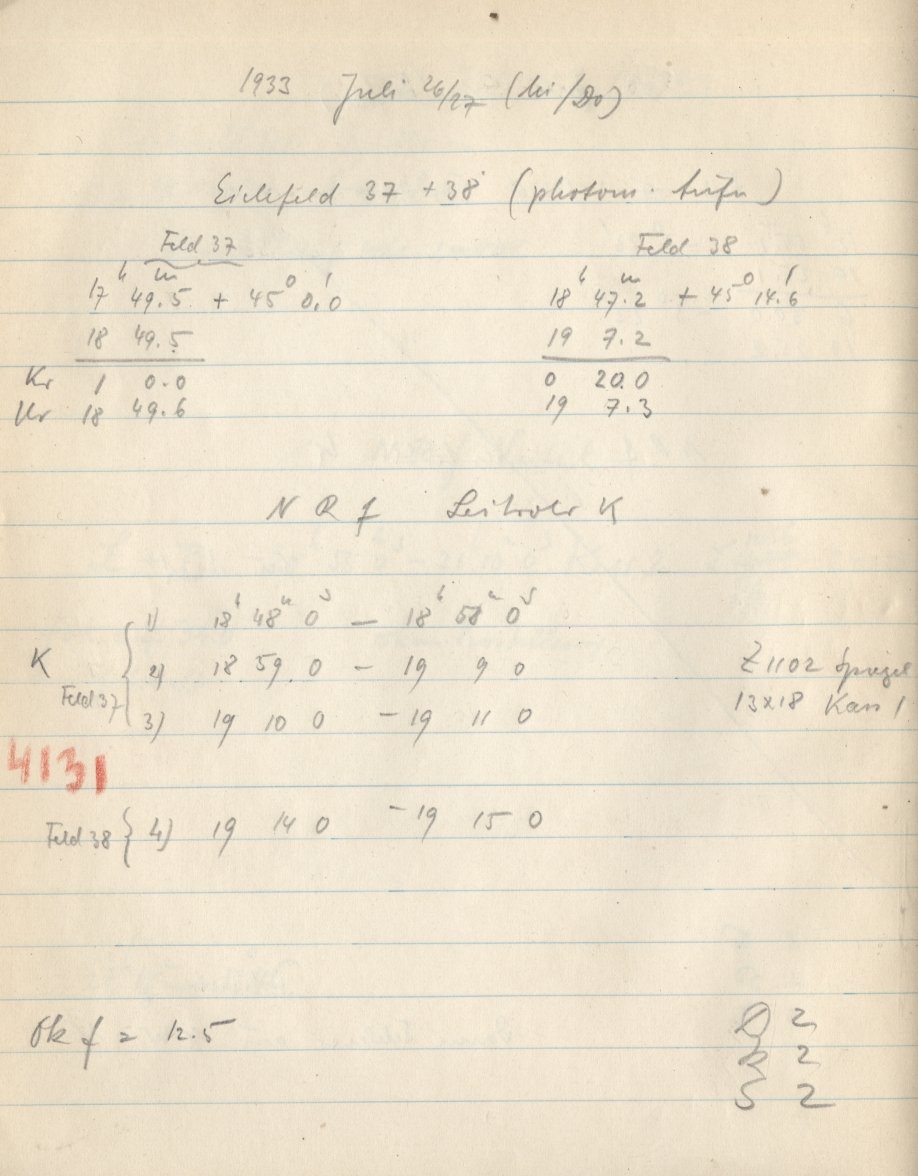 1933 Juli 26/27 (hi/Do)
Eichfeld 37 + 38 (photom.
Feld 37
17 h 49.5 m + 45° 0.'0
18 49.5
Kr 1 0.0
Ur 18 49.6
Feld 38
18 h 47.2 m + 45° 14.'6
19 7.2
0 20.0
19 7.3
N R f Leitrohr K
K
Feld 37
1) 18 h 48 m 0 s — 18 h 58 m 0 s
2) 18 59 0 — 19 9 0
3) 19 10 0 — 19 11 0
Z 1102 Spiegel
13x18 Kass 1
4131
Feld 38 { 4) 19 14 0 — 19 15 0
Ok f = 12.5
D 2
R 2
S 2